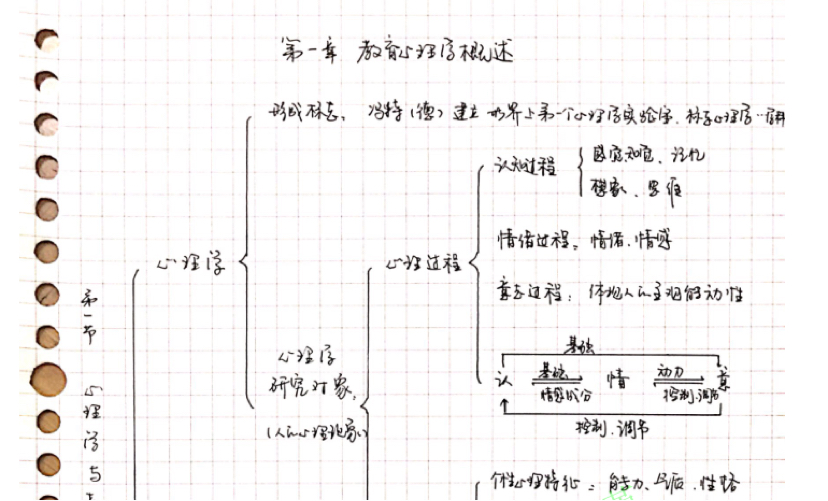 第一章 教育心理学概述
形成标志: 冯特(德)建立世界上第一个心理学实验室,科学心理学
认知过程
感觉知觉、记忆
想象、思维
情绪过程: 情绪、情感
心理学
心理过程
意志过程: 体现人的主观能动性
第一节 心理学与
心理学
研究对象:
(人的心理现象)
基础
认 基础 情 动力 意
情感成分 控制、调节
控制、调节
个性心理特征: 能力、气质、性格